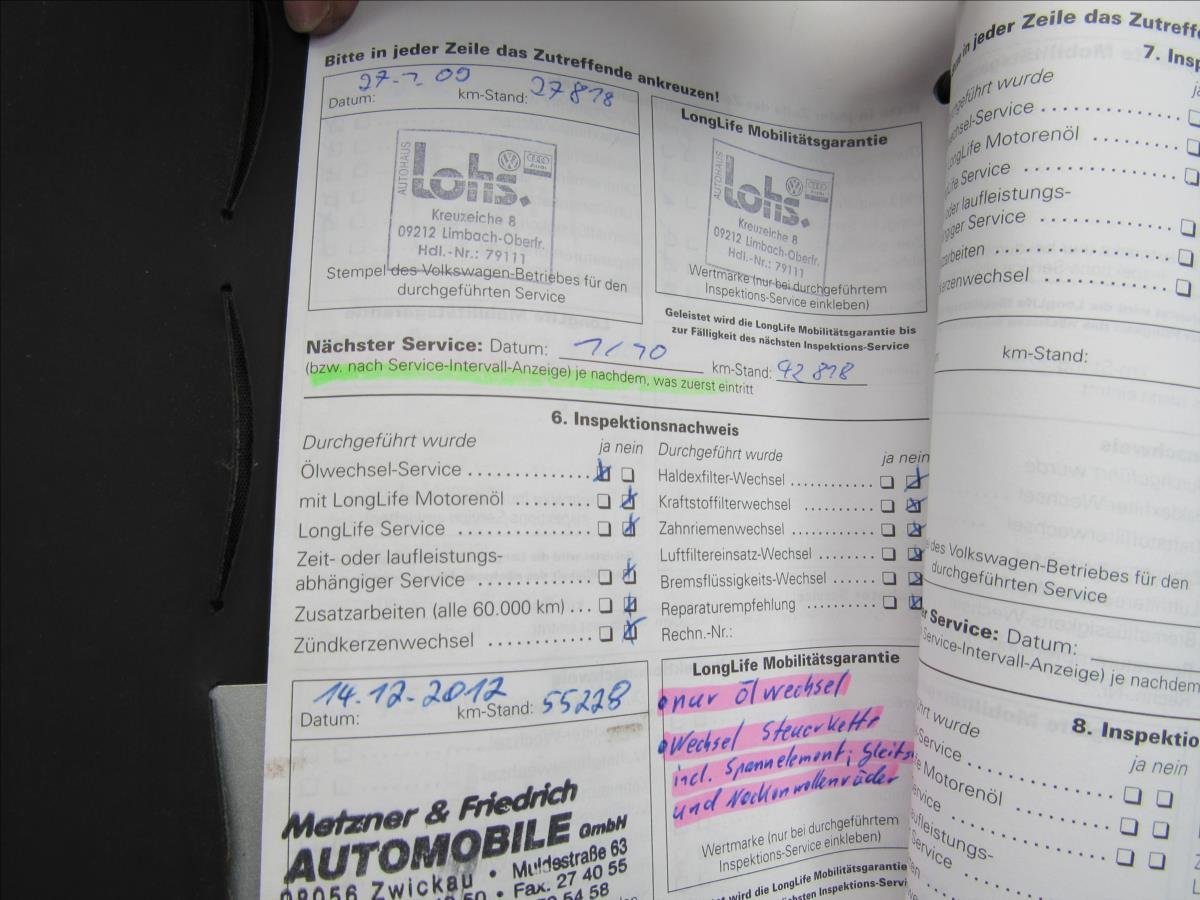 Bitte in jeder Zeile das Zutreffende ankreuzen!
27.1.09 27818
Datum: km-Stand:
AUTOHAUS
Lohs.
Audi
Kreuzeiche 8
09212 Limbach-Oberfr.
Hdl.-Nr.: 79111
Stempel des Volkswagen-Betriebes für den
durchgeführten Service
LongLife Mobilitätsgarantie
AUTOHAUS
Lohs.
Kreuzeiche 8
09212 Limbach-Oberfr.
Hdl.-Nr.: 79111
Wertmarke (nur bei durchgeführtem
Inspektions-Service einkleben)
Geleistet wird die LongLife Mobilitätsgarantie bis
zur Fälligkeit des nächsten Inspektions-Service
Nächster Service: Datum: 1/10 km-Stand: 42818
(bzw. nach Service-Intervall-Anzeige) je nachdem, was zuerst eintritt
6. Inspektionsnachweis
Durchgeführt wurde ja nein
Ölwechsel-Service
mit LongLife Motorenöl
LongLife Service
Zeit- oder laufleistungs-
abhängiger Service
Zusatzarbeiten (alle 60.000 km)
Zündkerzenwechsel
Durchgeführt wurde ja nein
Haldexfilter-Wechsel
Kraftstoffilterwechsel
Zahnriemenwechsel
Luftfiltereinsatz-Wechsel
Bremsflüssigkeits-Wechsel
Reparaturempfehlung
Rechn.-Nr.:
14.12.2012 55228
Datum: km-Stand:
Metzner & Friedrich
AUTOMOBILE GmbH
08056 Zwickau • Muldestraße 63
• Fax. 27 40 55
54 58
LongLife Mobilitätsgarantie
• nur Ölwechsel
• Wechsel Steuerkette
incl. Spannelement; Gleits
und Nockenwellenräder
Wertmarke (nur bei durchgeführtem
Inspektions-Service einkleben)
wird die LongLife Mobilitätsgarantie
in jeder Zeile das Zutreffe
7. Insp
geführt wurde
hsel-Service
LongLife Motorenöl
Life Service
oder laufleistungs-
giger Service
arbeiten
kerzenwechsel
km-Stand:
des Volkswagen-Betriebes für den
durchgeführten Service
Service: Datum:
Service-Intervall-Anzeige) je nachdem
8. Inspektio
führt wurde ja nein
Service
Motorenöl
ervice
aufleistungs-
Service